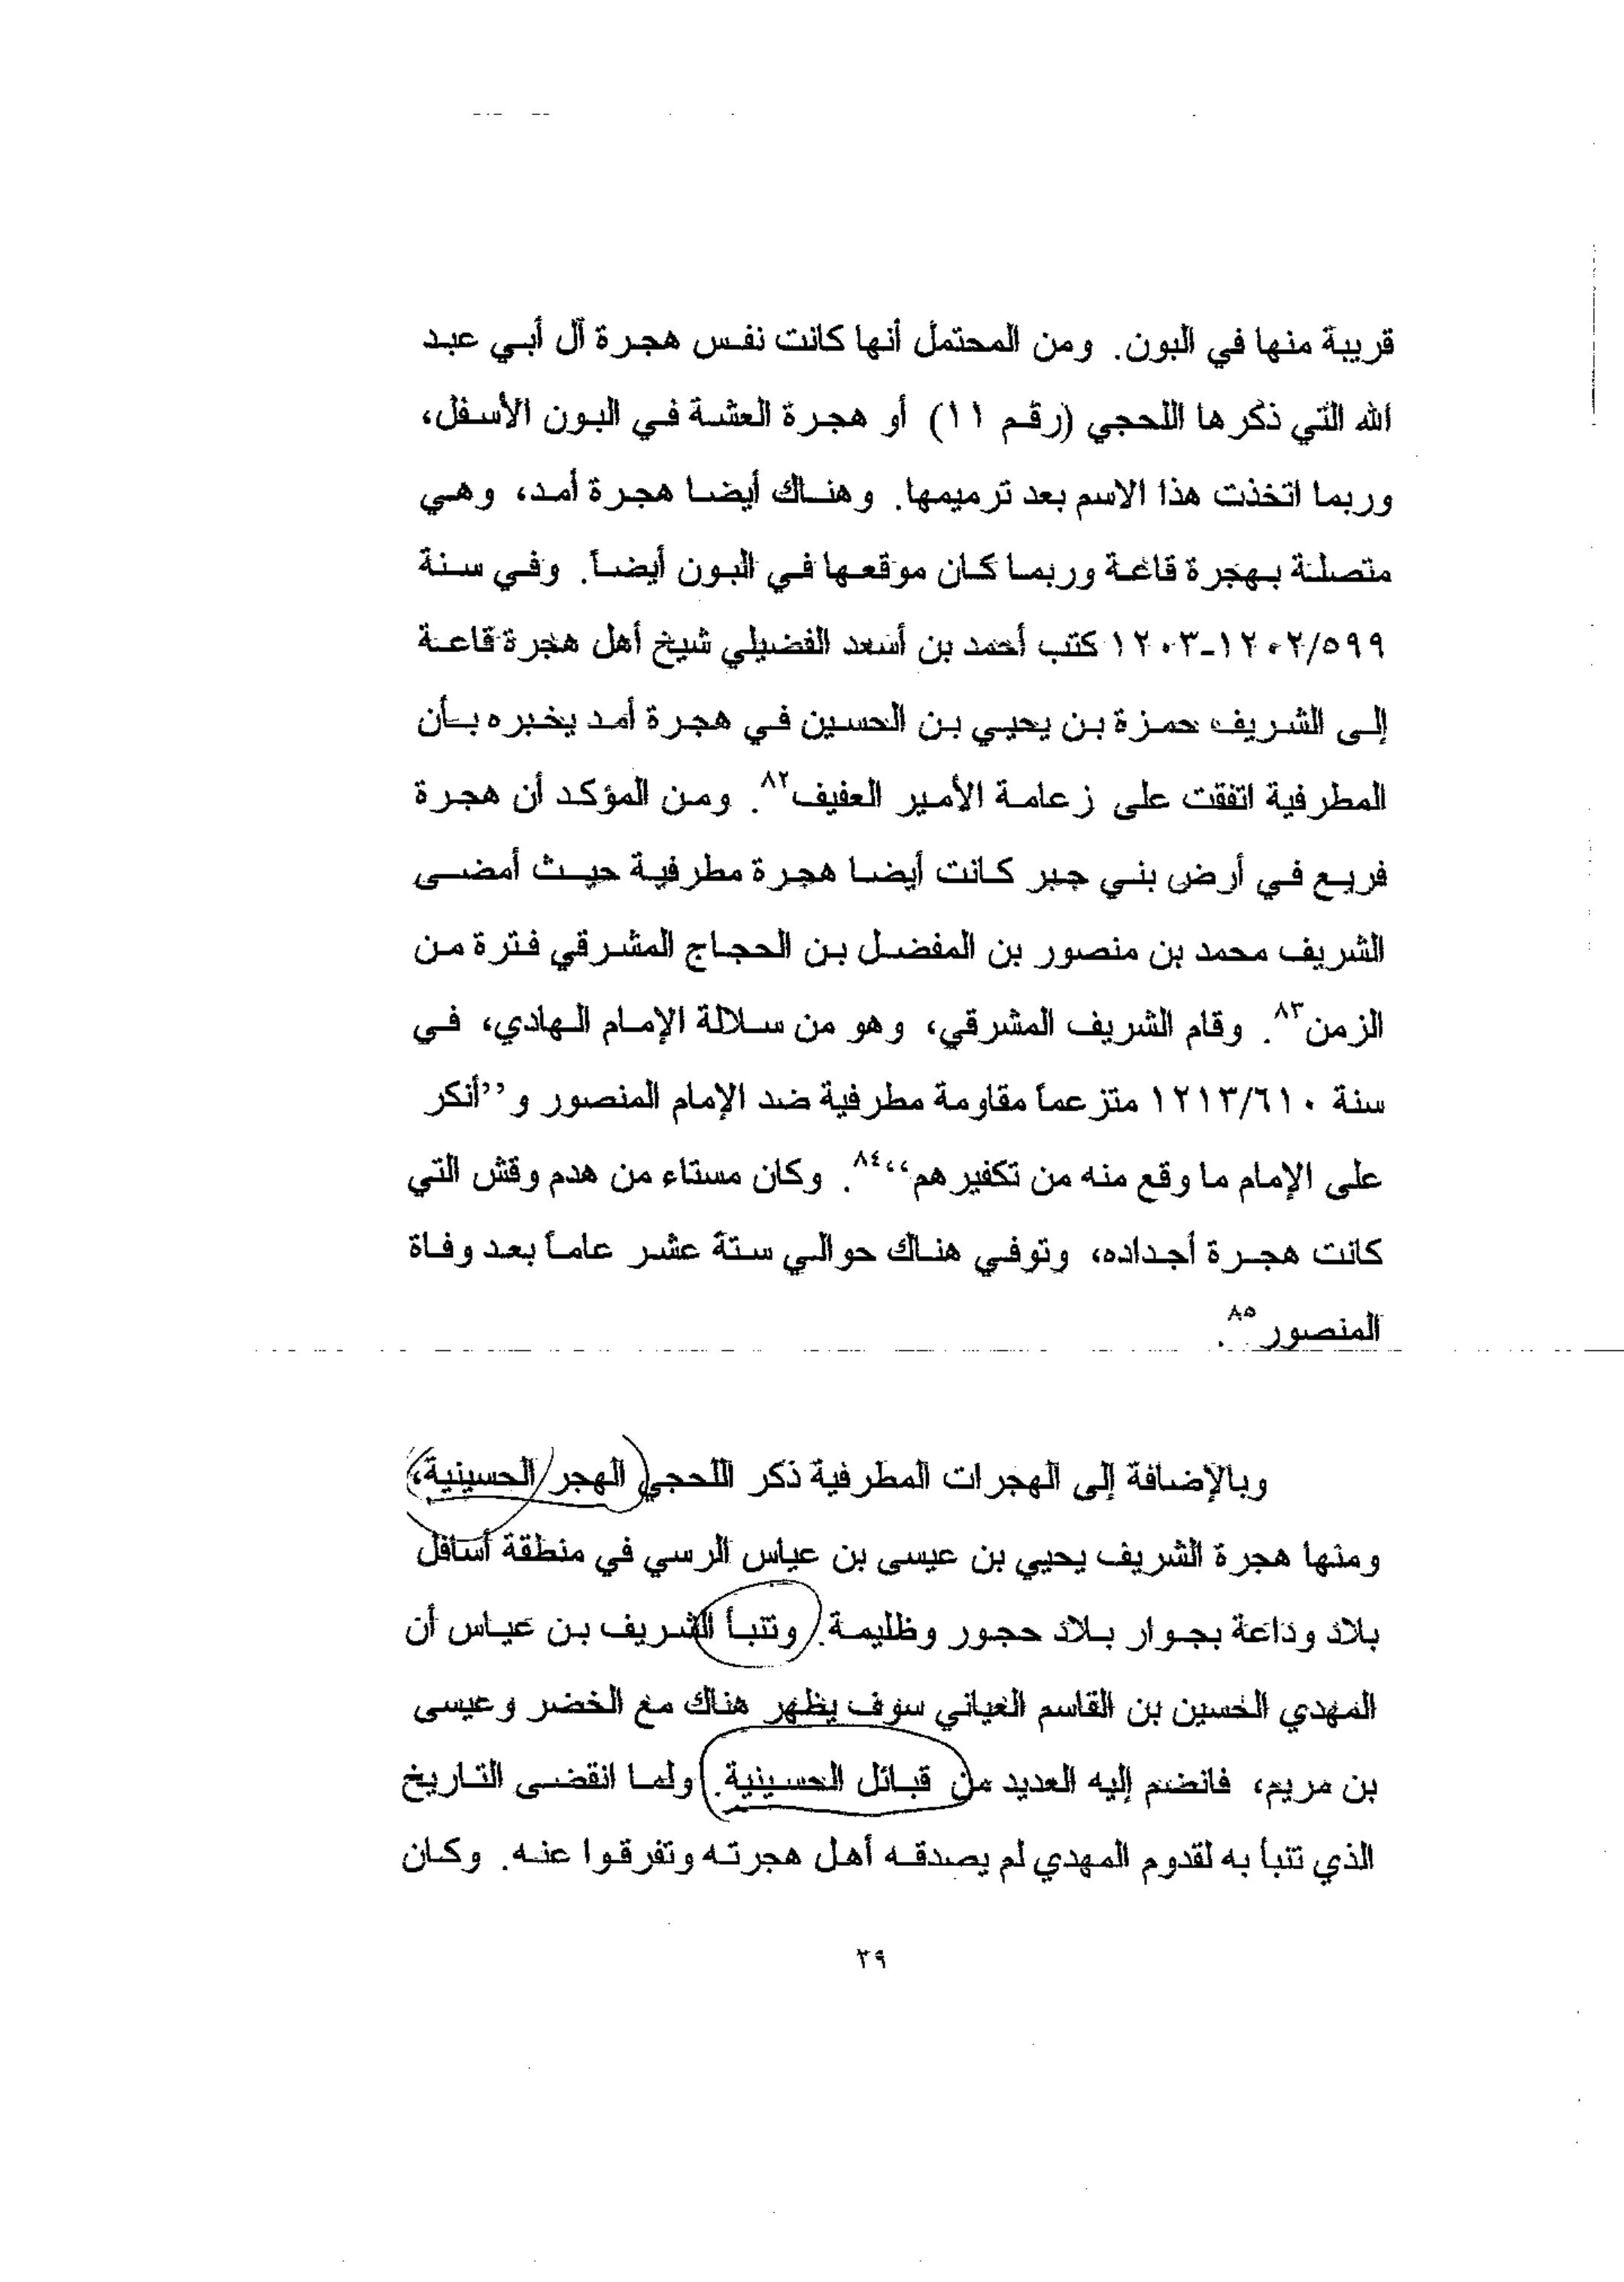 قريبة منها في البون. ومن المحتمل أنها كانت نفس هجرة آل أبي عبد
الله التي ذكرها اللحجي (رقم ١١) أو هجرة العشة في البون الأسفل،
وربما اتخذت هذا الاسم بعد ترميمها. وهناك أيضا هجرة أمد، وهي
متصلة بهجرة قاعة وربما كان موقعها في البون أيضاً. وفي سنة
٥٩٩/١٢٠٢-١٢٠٣ كتب أحمد بن أسعد الفضيلي شيخ أهل هجرة قاعة
إلى الشريف حمزة بن يحيي بن الحسين في هجرة أمد يخبره بأن
المطرفية اتفقت على زعامة الأمير العفيف٨٢. ومن المؤكد أن هجرة
فريع في أرض بني جبر كانت أيضا هجرة مطرفية حيث أمضى
الشريف محمد بن منصور بن المفضل بن الحجاج المشرقي فترة من
الزمن٨٣. وقام الشريف المشرقي، وهو من سلالة الإمام الهادي، في
سنة ٦١٠/١٢١٣ متزعماً مقاومة مطرفية ضد الإمام المنصور و’’أنكر
على الإمام ما وقع منه من تكفيرهم‘‘٨٤. وكان مستاء من هدم وقش التي
كانت هجرة أجداده، وتوفي هناك حوالي ستة عشر عاماً بعد وفاة
المنصور٨٥.
وبالإضافة إلى الهجرات المطرفية ذكر اللحجي الهجر الحسينية،
ومنها هجرة الشريف يحيي بن عيسى بن عباس الرسي في منطقة أسافل
بلاد وداعة بجوار بلاد حجور وظليمة. وتنبأ الشريف بن عياس أن
المهدي الحسين بن القاسم العياني سوف يظهر هناك مع الخضر وعيسى
بن مريم، فانضم إليه العديد من قبائل الحسينية. ولما انقضى التاريخ
الذي تنبأ به لقدوم المهدي لم يصدقه أهل هجرته وتفرقوا عنه. وكان
٢٩